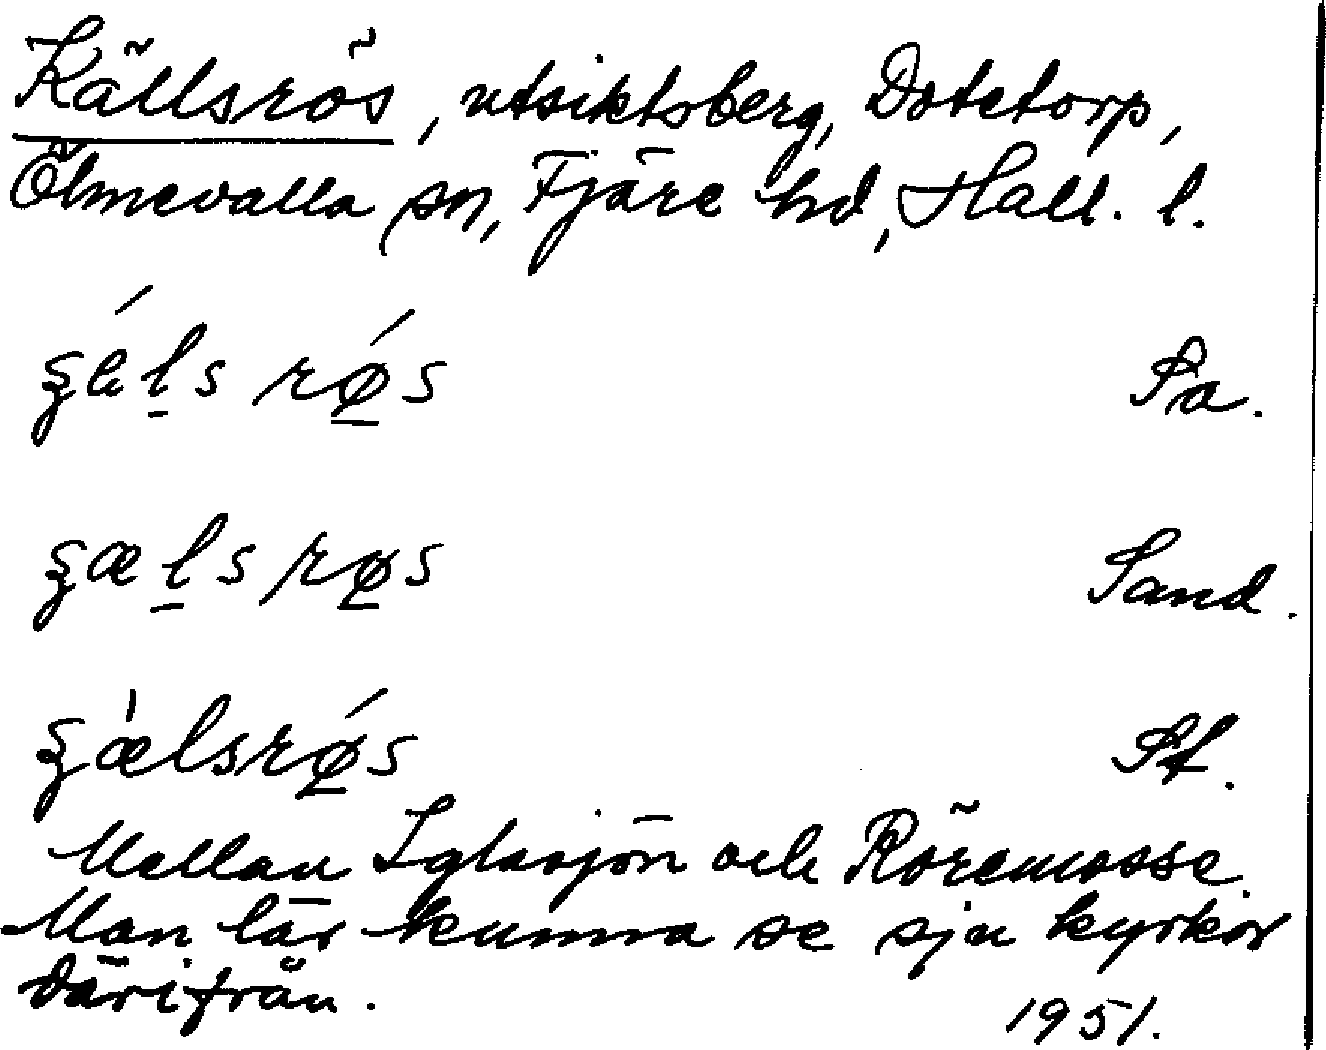 Källsrös, utsiktsberg, Dotetorp,
Ölmevalla sn, Fjäre hd, Hall. l.
Sa.
Sand.
St.
Mellan Iglasjön och Röremosse.
Man lär kunna se sju kyrkor
därifrån.
1951.